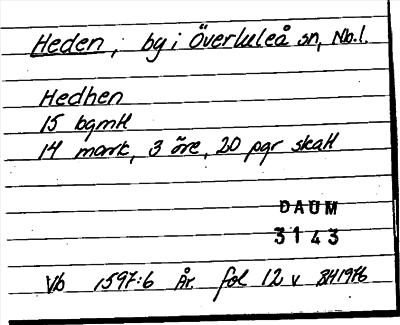 Heden, by i Överluleå sn, Nb.l.
Hedhen
15 bgmtl
14 mark, 3 öre, 20 pgr skatt
DAUM
3143
Vb 1597:6 År. fol 12 v BH1976